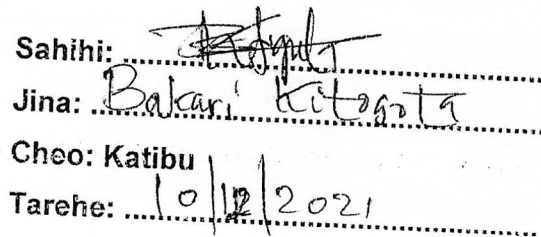 Sahihi:
Jina: Bakari Kitogota
Cheo: Katibu
Tarehe: 10/12/2021